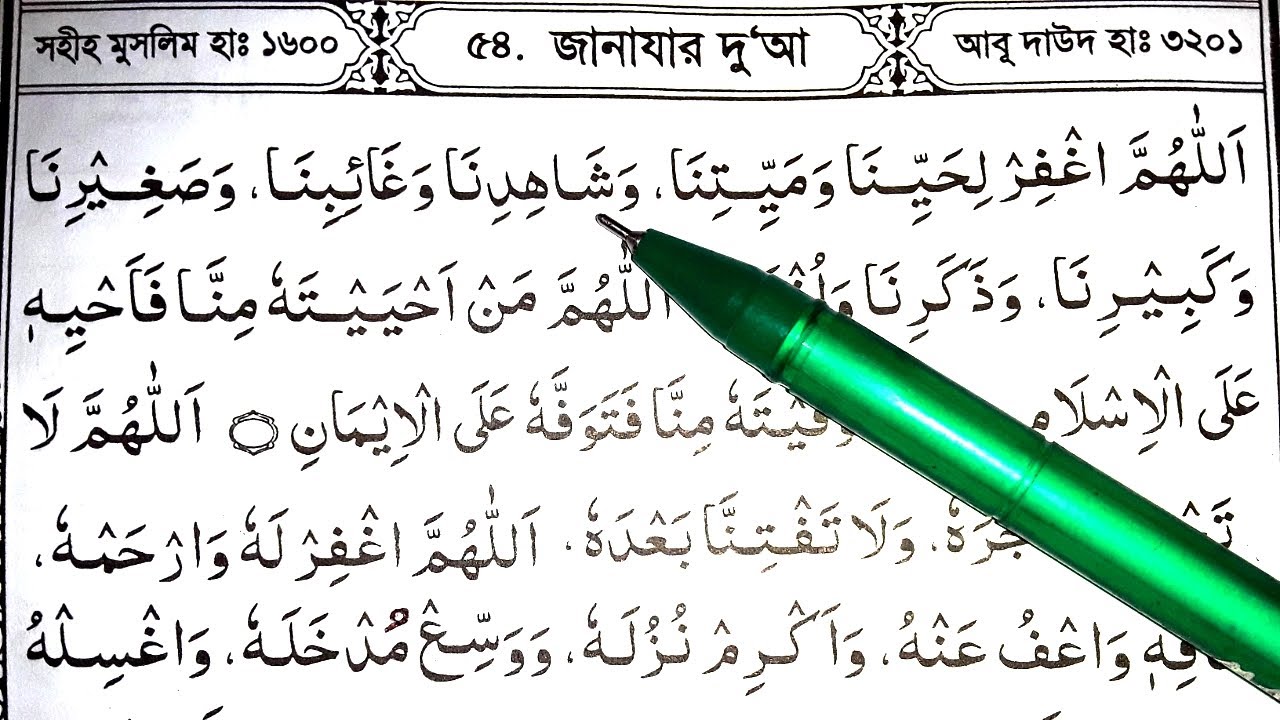 সহীহ মুসলিম হাঃ ১৬০০
৫৪. জানাযার দু‘আ
আবূ দাউদ হাঃ ৩২০১
اَللّٰهُمَّ اغْفِرْ لِحَيِّنَا وَمَيِّتِنَا، وَشَاهِدِنَا وَغَائِبِنَا، وَصَغِيْرِنَا
وَكَبِيْرِنَا، وَذَكَرِنَا اَللّٰهُمَّ مَنْ اَحْيَيْتَهٗ مِنَّا فَاَحْيِهٖ
عَلَى الْاِسْلَامِ مِنَّا فَتَوَفَّهٗ عَلَى الْاِيْمَانِ ۝ اَللّٰهُمَّ لَا
وَلَا تَفْتِنَّا بَعْدَهٗ، اَللّٰهُمَّ اغْفِرْ لَهٗ وَارْحَمْهٗ،
وَاعْفُ عَنْهُ، وَاَكْرِمْ نُزُلَهٗ، وَوَسِّعْ مُدْخَلَهٗ، وَاغْسِلْهُ